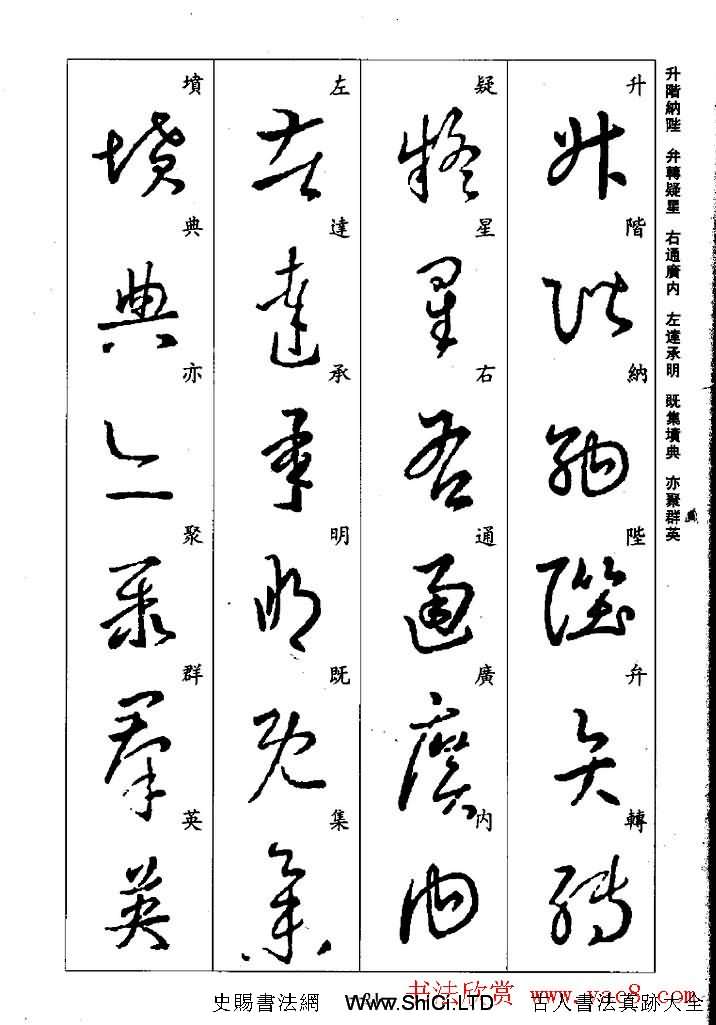 升階納陛 弁轉疑星 右通廣内 左達承明 既集墳典 亦聚群英
升階納陛弁轉
疑星右通廣内
左達承明既集
墳典亦聚群英
书法欣赏 www.yac8.com
史賜書法網 WWW.ShiCi.LTD 古人書法真跡大全